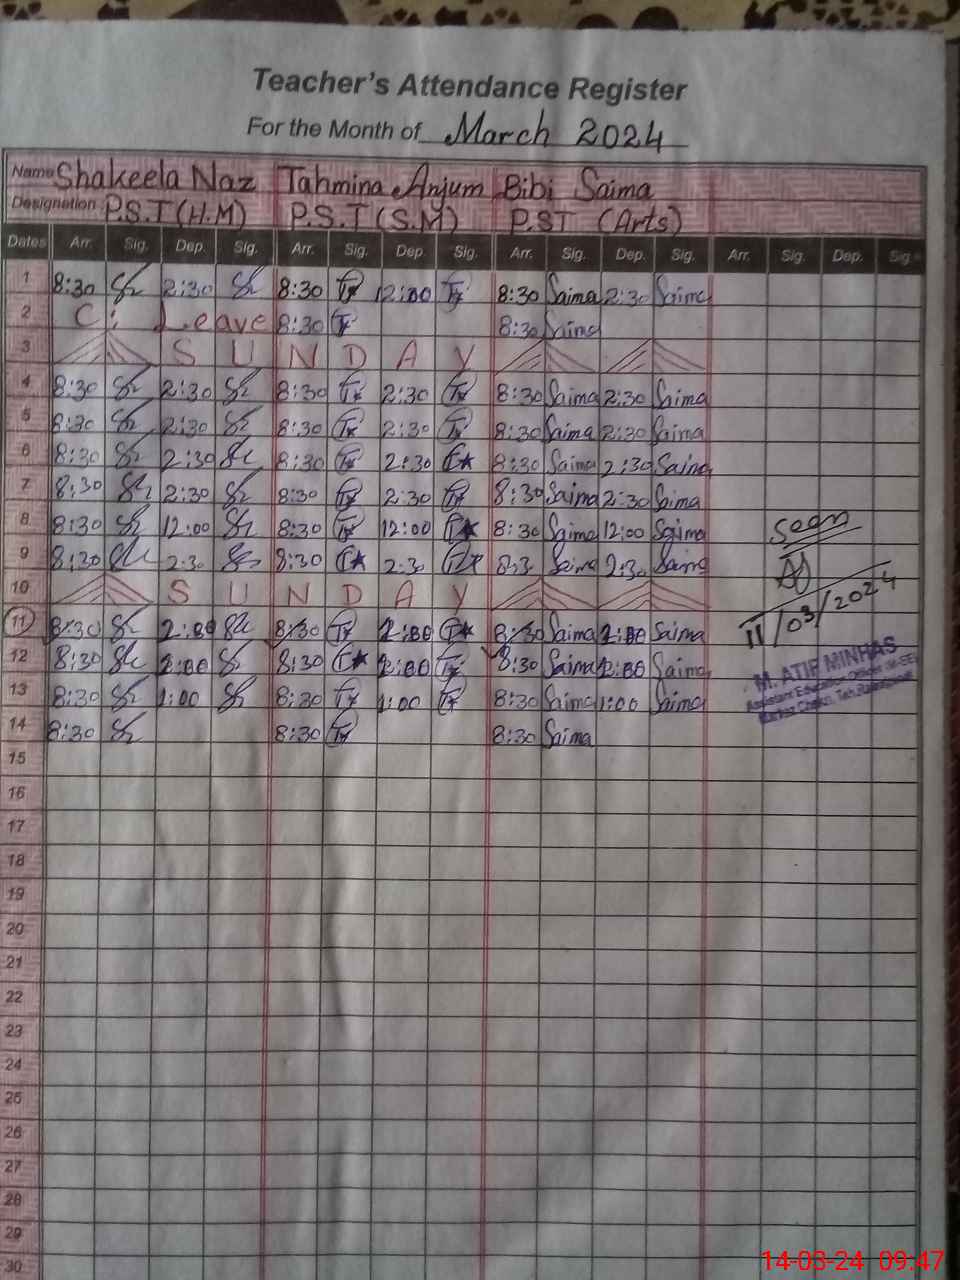 Teacher's Attendance Register
For the Month of March 2024
Name Shakeela Naz Tahmina Anjum Bibi Saima
Designation P.S.T (H.M) P.S.T (S.M) PST (Arts)
Dates Arr. Sig. Dep. Sig. Arr. Sig. Dep. Sig. Arr. Sig. Dep. Sig. Arr. Sig. Dep. Sig.
1 8:30 2:30 8:30 12:00 8:30 Saima 2:30 Saima
2 C: Leave 8:30 8:30 Saima
3 SUNDAY
4 8:30 2:30 8:30 2:30 8:30 Saima 2:30 Saima
5 8:30 2:30 8:30 2:30 8:30 Saima 2:30 Saima
6 8:30 2:30 8:30 2:30 8:30 Saima 2:30 Saima
7 8:30 2:30 8:30 2:30 8:30 Saima 2:30 Saima
8 8:30 12:00 8:30 12:00 8:30 Saima 12:00 Saima
Seen
9 8:30 2:30 8:30 2:30 Saima 2:30 Saima
10 SUNDAY
11/03/2024
11 8:30 2:00 8:30 2:00 8:30 Saima 2:00 Saima
12 8:30 2:00 8:30 2:00 8:30 Saima 2:00 Saima
M. ATIF MINHAS
Assistant Education Officer
13 8:30 1:00 8:30 1:00 8:30 Saima 1:00 Saima
14 8:30 8:30 8:30 Saima
15
16
17
18
19
20
21
22
23
24
25
26
27
28
29
30
14-03-24 09:47